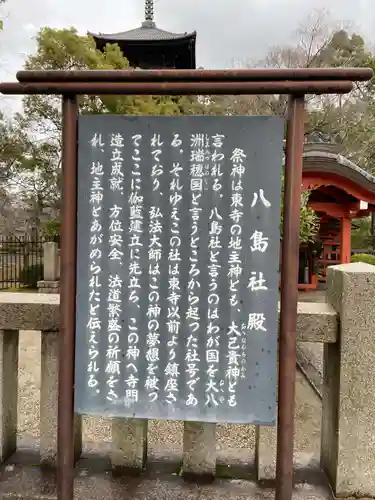 八島社殿
祭神は東寺の地主神とも、大己貴神とも
おおなむちのかみ
言われる。八島社と言うのはわが国を大八
洲瑞穂国と言うところから起った社号であ
る。それゆえこの社は東寺以前より鎮座さ
れており、弘法大師はこの神の夢想を被つ
てここに伽藍建立に先立ち、この神へ寺門
造立成就、方位安全、法道繁盛の祈願をさ
れ、地主神とあがめられたと伝えられる。